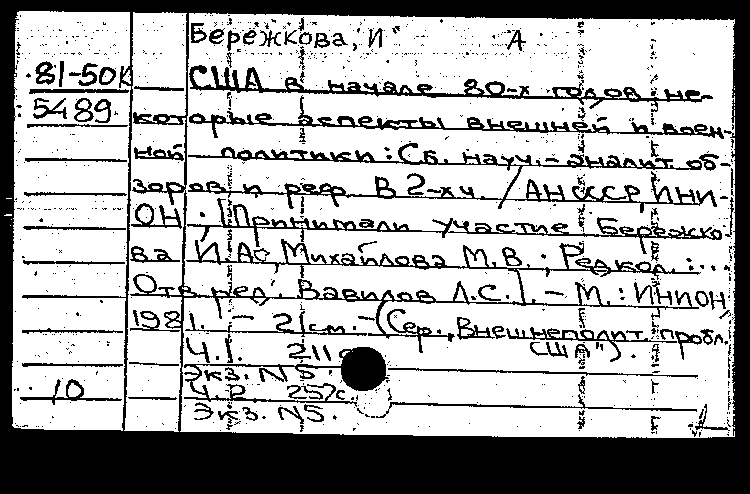 Бережкова, И А
81-50к США в начале 80-х годов не-
5489 которые аспекты внешней и воен-
ной политики: Сб. науч.-аналит. об-
зоров и реф. В 2-х ч. / АН СССР, ИНИ-
ОН; [Принимали участие Бережко-
ва И.А., Михайлова М.В.; Редкол.:...
Отв. ред. Вавилов Л.С.]. – М.: ИНИОН,
1981. – 21 см. – (Сер. „Внешнеполит. пробл.
США").
Ч.1. 211 с.
Экз. N5.
10 Ч.2. 257с.
Экз. N5.